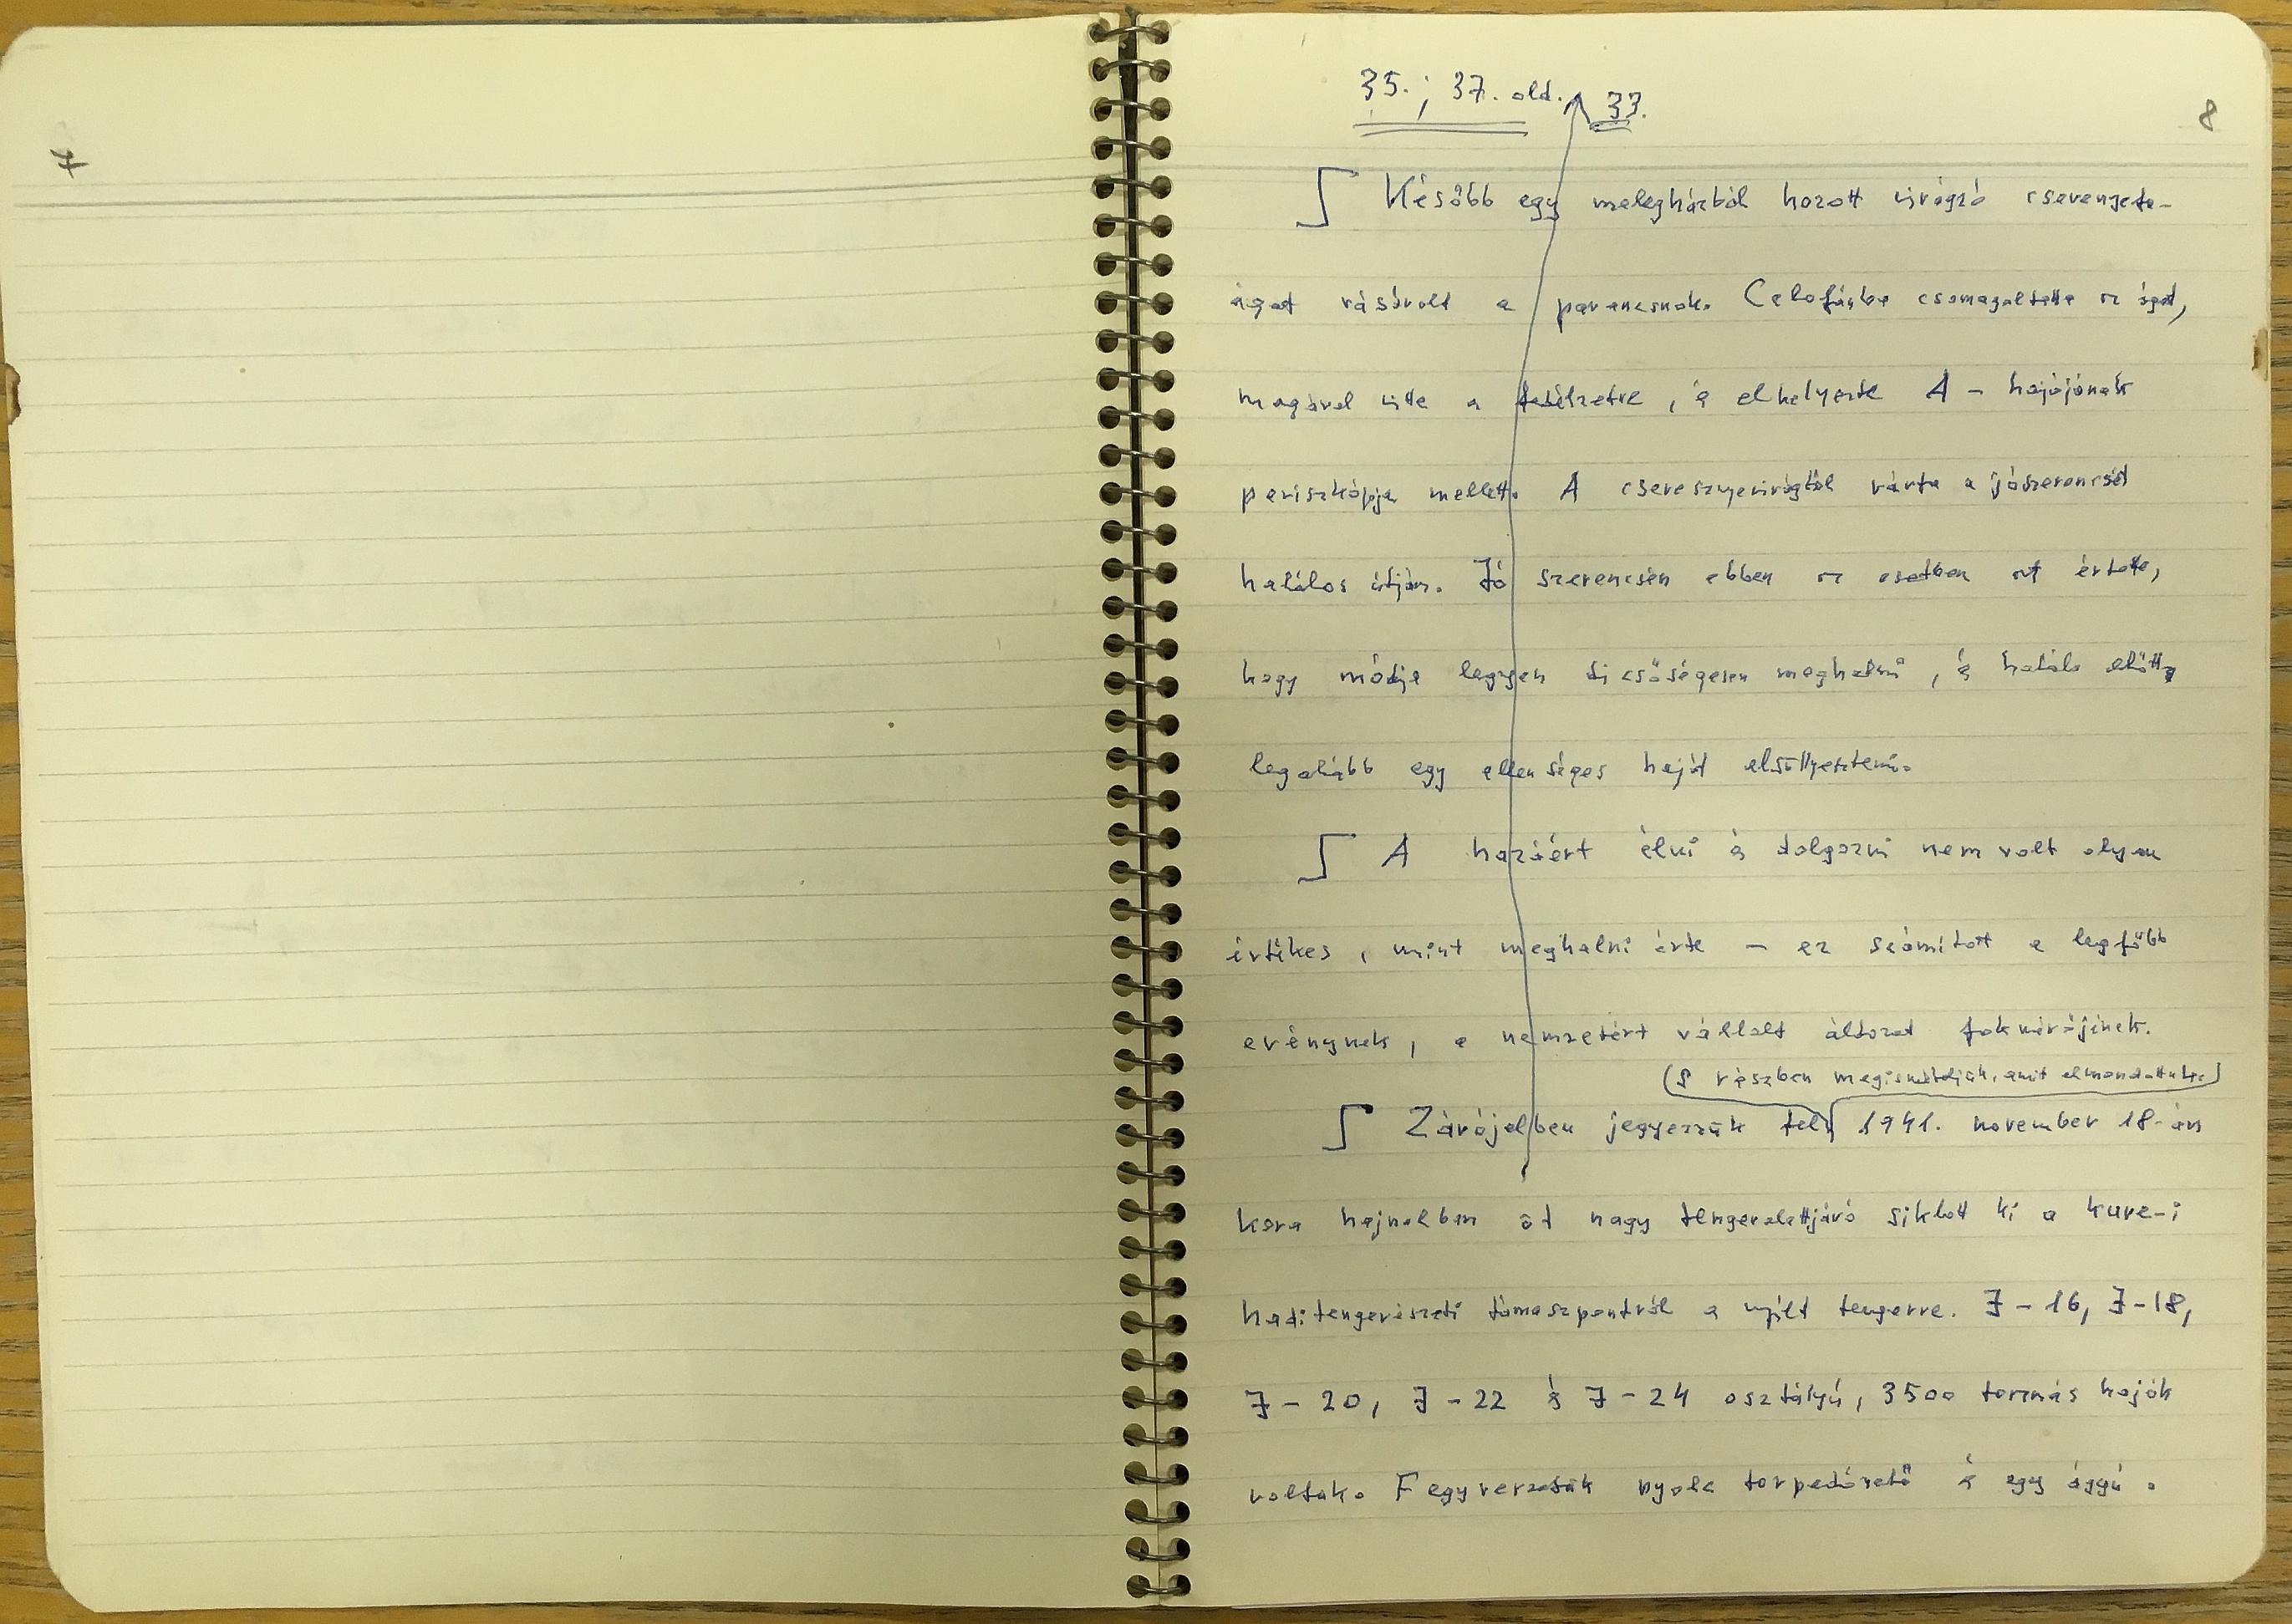 7
35.; 37. old. 33.
8
Később egy melegházból hozott virágzó cseresznye-
ágat vásárolt a parancsnok. Celofánba csomagoltatta az ágat,
magával vitte a fedélzetre, és elhelyezte A - hajójának
periszkópja mellett. A cseresznyevirágtól várta a jószerencsét
halálos útján. Jó szerencsén ebben az esetben azt értette,
hogy módja legyen dicsőségesen meghalni, és halála előtt
legalább egy ellenséges hajót elsüllyeszteni.
A hazáért élni és dolgozni nem volt olyan
értékes, mint meghalni érte - ez számított a legfőbb
erénynek, a nemzetért vállalt áldozat fokmérőjének.
(S részben megismételjük, amit elmondottunk.)
Zárójelben jegyezzük fel, 1941. november 18-án
kora hajnalban öt nagy tengeralattjáró siklott ki a kure-i
haditengerészeti támaszpontról a nyílt tengerre. I - 16, I - 18,
I - 20, I - 22 és I - 24 osztályú, 3500 tonnás hajók
voltak. Fegyverzetük nyolc torpedóvető és egy ágyú.